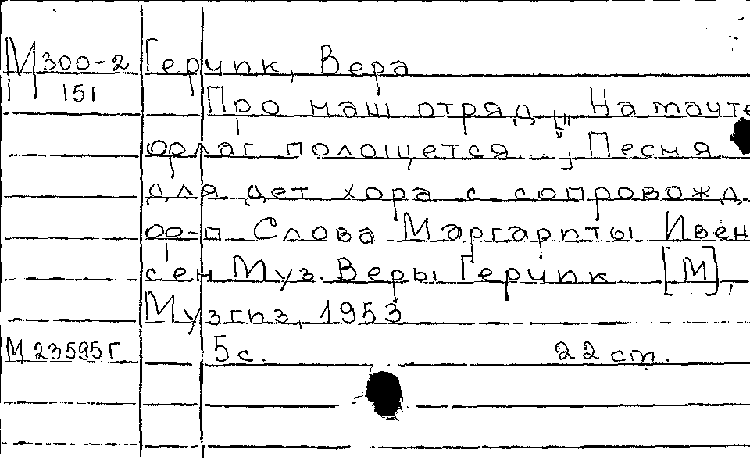 М300-2 Герчик, Вера
151 Про наш отряд. „На мачте
флаг полощется...“ Песня
для дет хора с сопровожд.
ф-п Слова Маргариты Ивен-
сен Муз. Веры Герчик [М],
Музгиз, 1953
М23595Г 5 с. 22 cm.